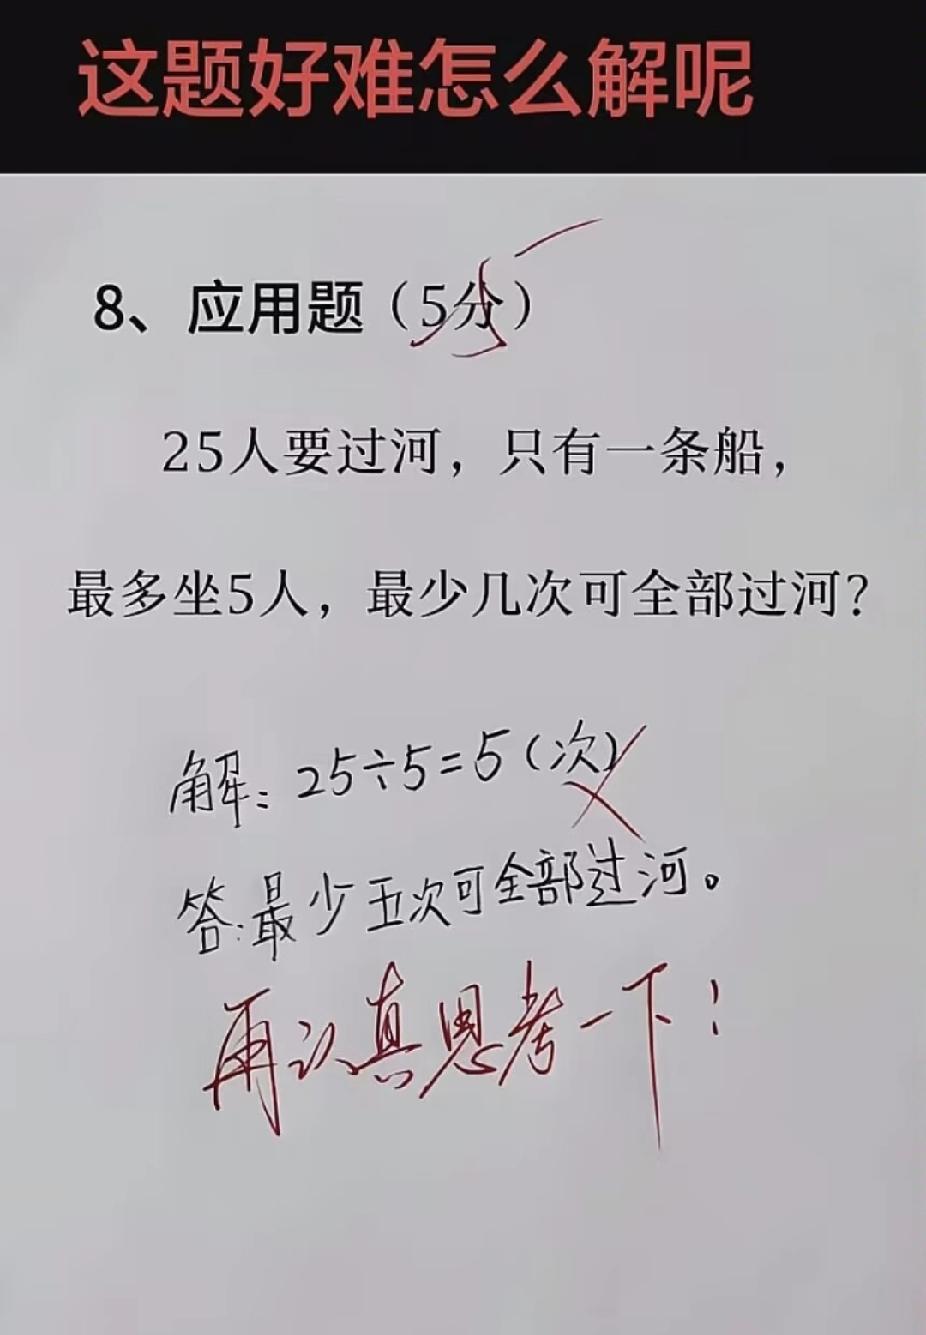 这题好难怎么解呢
8、应用题（5分）
25人要过河，只有一条船，
最多坐5人，最少几次可全部过河？
解：25÷5=5（次）
答：最少五次可全部过河。
再认真思考一下！